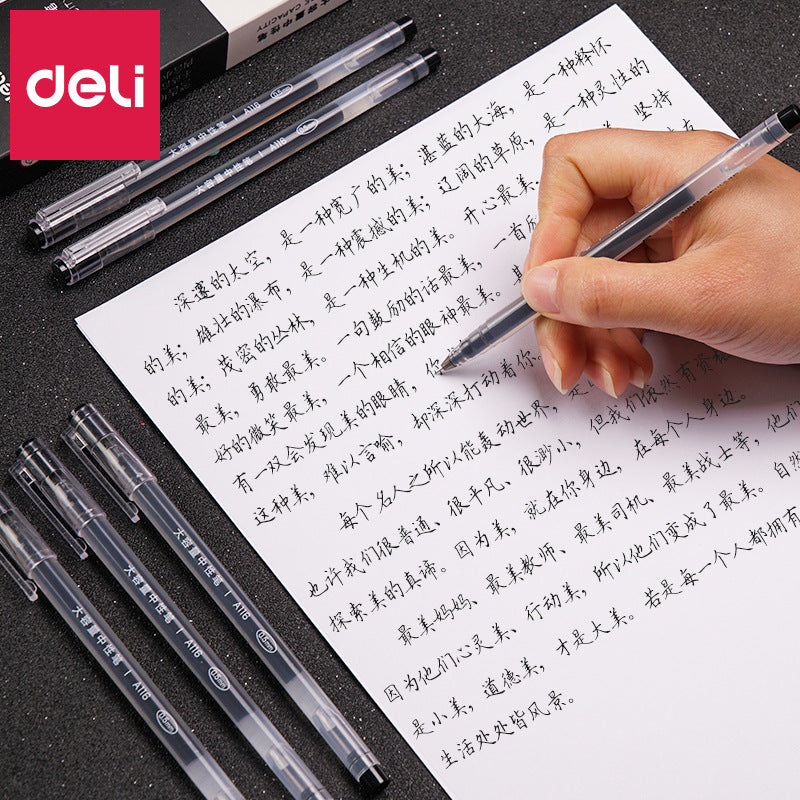 deli
大容量中性笔
CAPACITY
大容量中性笔 | A116 0.5mm
大容量中性笔 | A116 0.5mm
深邃的太空，是一种宽广的美；湛蓝的大海，是一种释怀
的美；雄壮的瀑布，是一种震撼的美；辽阔的草原，是一种灵性的
的美；茂密的丛林，是一种生机的美。开心最美， 美，坚持
最美，勇敢最美。一句鼓励的话最美，一首 友
好的微笑最美，一个相信的眼神最美。
有一双会发现美的眼睛，你
这种美，难以言喻，却深深打动着你。
每个名人之所以能轰动世界，是
也许我们很普通、很平凡、很渺小，但我们依然有资格
探索美的真谛。因为美，就在你身边，在每个人身边。
最美妈妈、最美教师、最美司机、最美战士等，他们
因为他们心灵美、行动美，所以他们变成了最美。自然
是小美，道德美，才是大美。若是每一个人都拥有
生活处处皆风景。
大容量中性笔 | A116 0.5mm
大容量中性笔 | A116 0.5mm